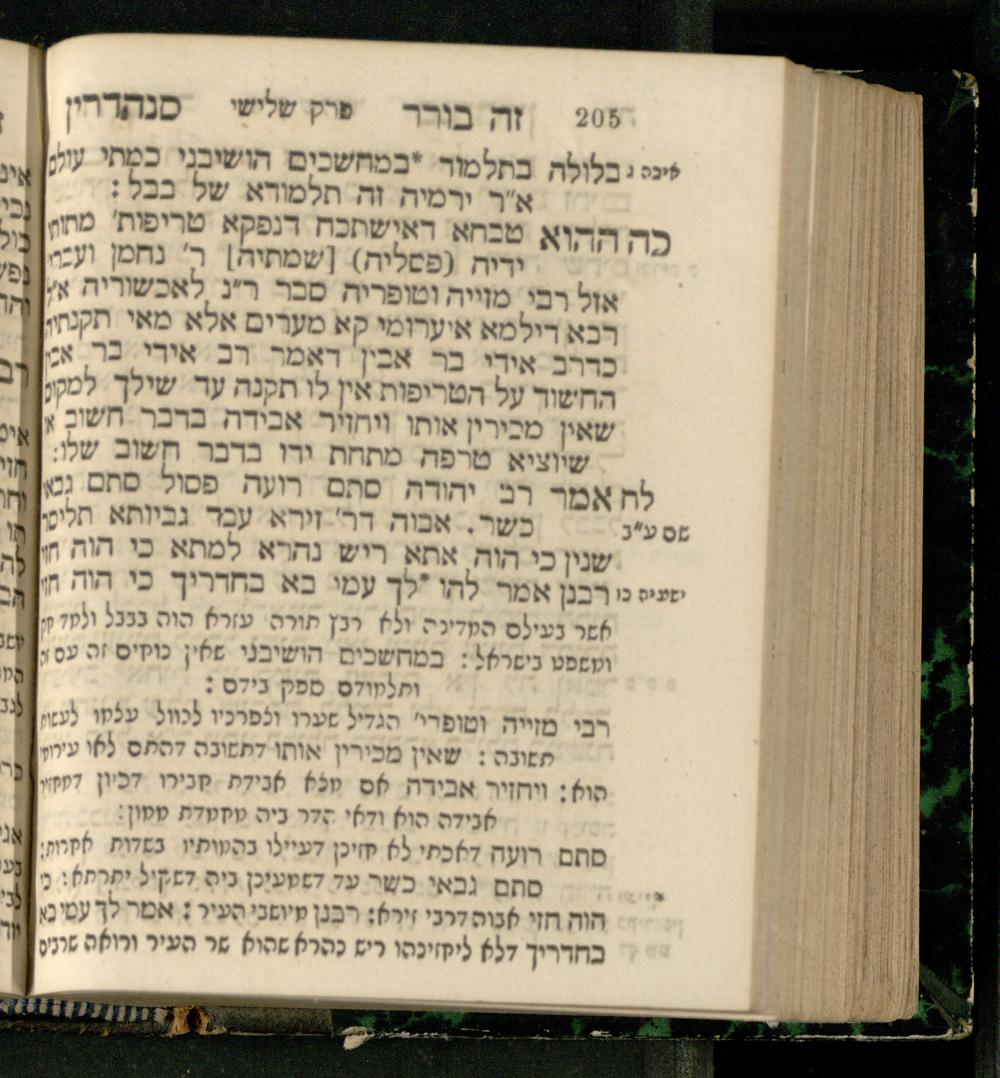 205 זה בורר פרק שלישי סנהדרין
איכה ג בלולה בתלמוד *במחשכים הושיבני כמתי עולם
א״ר ירמיה זה תלמודא של בבל:
כה ההוא טבחא דאישתכח דנפקא טריפות׳ מתותי
ידיה (פסליה) [שמתיה] ר׳ נחמן ועבריה
אזל רבי מזייה וטופריה סבר ר״נ לאכשוריה א״ל
רבא דילמא איערומי קא מערים אלא מאי תקנתיה
כדרב אידי בר אבין דאמר רב אידי בר אבין
החשוד על הטריפות אין לו תקנה עד שילך למקום
שאין מכירין אותו ויחזיר אבידה בדבר חשוב או
שיוציא טרפה מתחת ידו בדבר חשוב שלו:
לח אמר רב יהודה סתם רועה פסול סתם גבאי
שם ע״ב כשר. אבוה דר׳ זירא עבד גביותא תליסר
שנין כי הוה אתא ריש נהרא למתא כי הוה חזי
ישעיה כו רבנן אמר להו *לך עמי בא בחדריך כי הוה חזי
אשר בעילם המדינה ולא רבץ תורה עזרא הוה בבבל ולמד חק
ומשפט בישראל: במחשכים הושיבני שאין נוחים זה עם זה
ותלמודם ספק בידם:
רבי מזייה וטופרי׳ הגדיל שערו וצפרניו לנוול עצמו לעשות
תשובה: שאין מכירין אותו דתשובה דהתם לאו עירומי
הוא: ויחזיר אבידה אם מצא אבידת חבירו דכיון דמחזיר
אבידה הוא ודאי הדר ביה מחמדת ממון:
סתם רועה דאכתי לא חזינן דעיילו בהמותיו בשדות אחרות:
סתם גבאי כשר עד דשמעינן ביה דשקיל יתרתא: כי
הוה חזי אבוה דרבי זירא: רבנן מיושבי העיר: אמר לך עמי בא
בחדריך דלא ליחזינהו ריש נהרא שהוא שר העיר ורואה שרבים